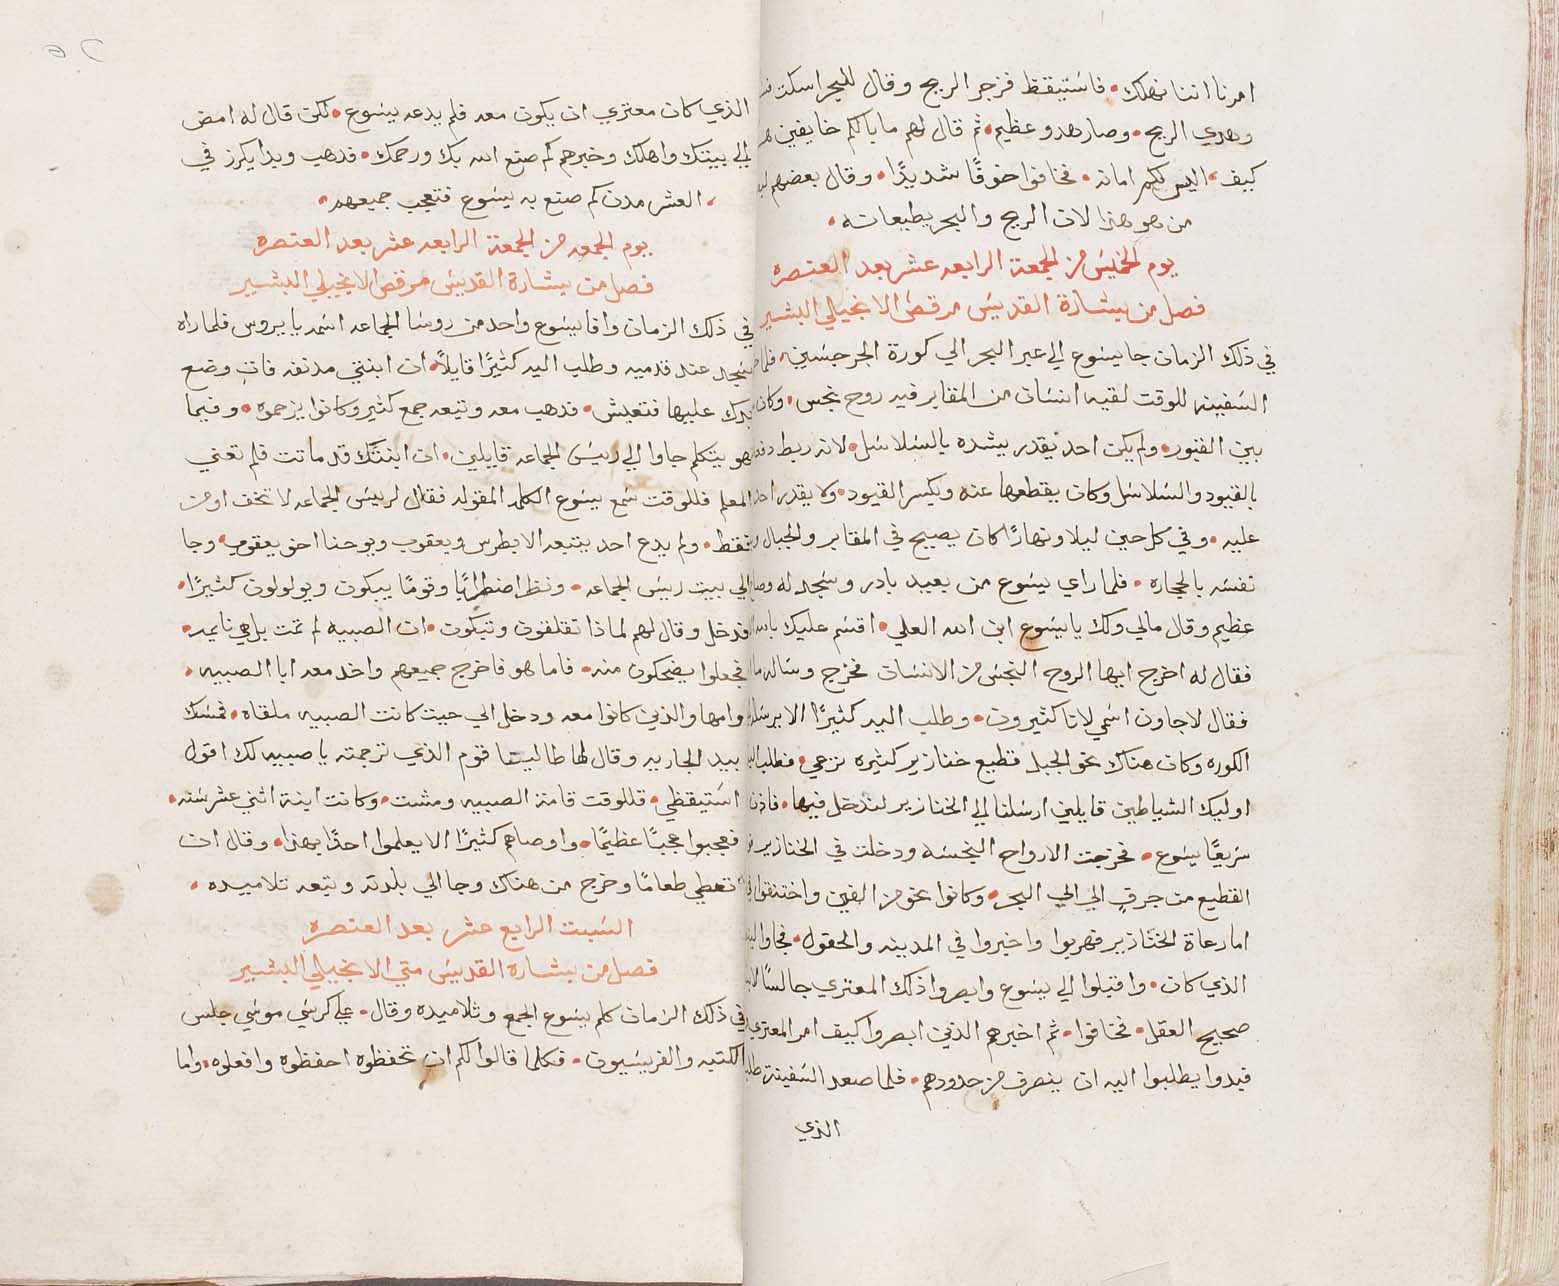 امرنا اننا نهلك • فاستيقظ فزجر الريح وقال للبحر اسكت
وهدي الريح • وصار هدو عظيم • ثم قال لهم ما بالكم خايفين
كيف • اليس لكم امانه • فخافوا خوفًا شديدًا • وقال بعضهم
من هو هذا لان الريح والبحر يطيعانه •
يوم الخميس من الجمعة الرابعه عشر بعد العنصره
فصل من بشارة القديس مرقص الانجيلي البشير
في ذلك الزمان جا يسوع الي عبر البحر الي كورة الجرجسين • فلما
السفينه للوقت لقيه انسان من المقابر فيه روح نجس • وكان
بين القبور • ولم يكن احد يقدر يشده بالسلاسل • لانه ربط
بالقيود والسلاسل وكان يقطعها عنه ويكسر القيود • ولا يقدر احد
عليه • وفي كل حين ليلا ونهارًا كان يصيح في المقابر والجبال
نفسه بالحجاره • فلما راي يسوع من بعيد بادر وسجد له
عظيم وقال مالي ولك يا يسوع ابن الله العلي • اقسم عليك بالله
فقال له اخرج ايها الروح النجس من الانسان فخرج وساله
فقال لاجاون اسمي لاننا كثيرون • وطلب اليه كثيرًا الا يرسله
الكوره وكان هناك نحو الجبل قطيع خنازير كثيره ترعي • فطلب
اوليك الشياطين قايلين ارسلنا الي الخنازير لندخل فيها • فاذن
سريعًا يسوع • فخرجت الارواح النجسه ودخلت في الخنازير
القطيع من جرف الي الي البحر • وكانوا نحو من الفين واختنقوا
اما رعاة الخنازير فهربوا واخبروا في المدينه والحقول • فجاوا
الذي كان • واقبلوا الي يسوع وابصروا ذلك المعتري جالسًا
صحيح العقل • فخافوا • ثم اخبرهم الذين ابصروا كيف امر المعتري
فبدوا يطلبوا اليه ان ينصرف من حدودهم • فلما صعد السفينة
الذي
الذي كان معتري ان يكون معه فلم يدعه يسوع • لكن قال له امض
الي بيتك واهلك وخبرهم كم صنع الله بك ورحمك • فدهب وبدا يكرز في
العشر مدن كم صنع به يسوع فتعجب جميعهم •
يوم الجمعه من الجمعة الرابعه عشر بعد العنصره
فصل من بشارة القديس مرقص الانجيلي البشير
في ذلك الزمان وافا يسوع واحد من روسا الجماعه اسمه يايروس فلما راه
سجد عند قدميه وطلب اليه كثيرًا قايلاً • ان ابنتي مدنفه فات وضع
يدك عليها فتعيش • فدهب معه وتبعه جمع كثير وكانوا يزحموه • وفيما
هو يتكلم جاوا الي رييس الجماعه قايلين • ان ابنتك قد ماتت فلم تعني
المعلم فللوقت سمع يسوع الكلمه المقوله فقال لرييس الجماعه لا تخف اومن
فقط • ولم يدع احد يتبعه الا بطرس ويعقوب ويوحنا اخو يعقوب • وجا
الي بيت رييس الجماعه • ونظر اضطرابًا وقومًا يبكون ويولولون كثيرًا •
فدخل وقال لهم لماذا تقلقون وتبكون • ان الصبيه لم تمت بل هي نايمه •
فجعلوا يضحكون منه • فاما هو فاخرج جميعهم واخد معه ابا الصبيه •
وامها والذين كانوا معه ودخل الي حيث كانت الصبيه ملقاه • فمسك
بيد الجاريه وقال لها طاليثا قوم الذي ترجمته يا صبيه لك اقول
استيقظي • فللوقت قامت الصبيه ومشت • وكانت ابنة اثني عشر سنه •
فعجبوا عجبًا عظيمًا • واوصاهم كثيرًا الا يعلموا احدًا بهذا • وقال ان
تعطي طعامًا وخرج من هناك وجا الي بلدته وتبعه تلاميده •
السبت الرابع عشر بعد العنصره
فصل من بشاره القديس متي الانجيلي البشير
في ذلك الزمان كلم يسوع الجمع وتلاميده وقال • علي كرسي موسي جلس
الكتبه والفريسيون • فكلما قالوا لكم ان تحفظوه احفظوه وافعلوه • واما